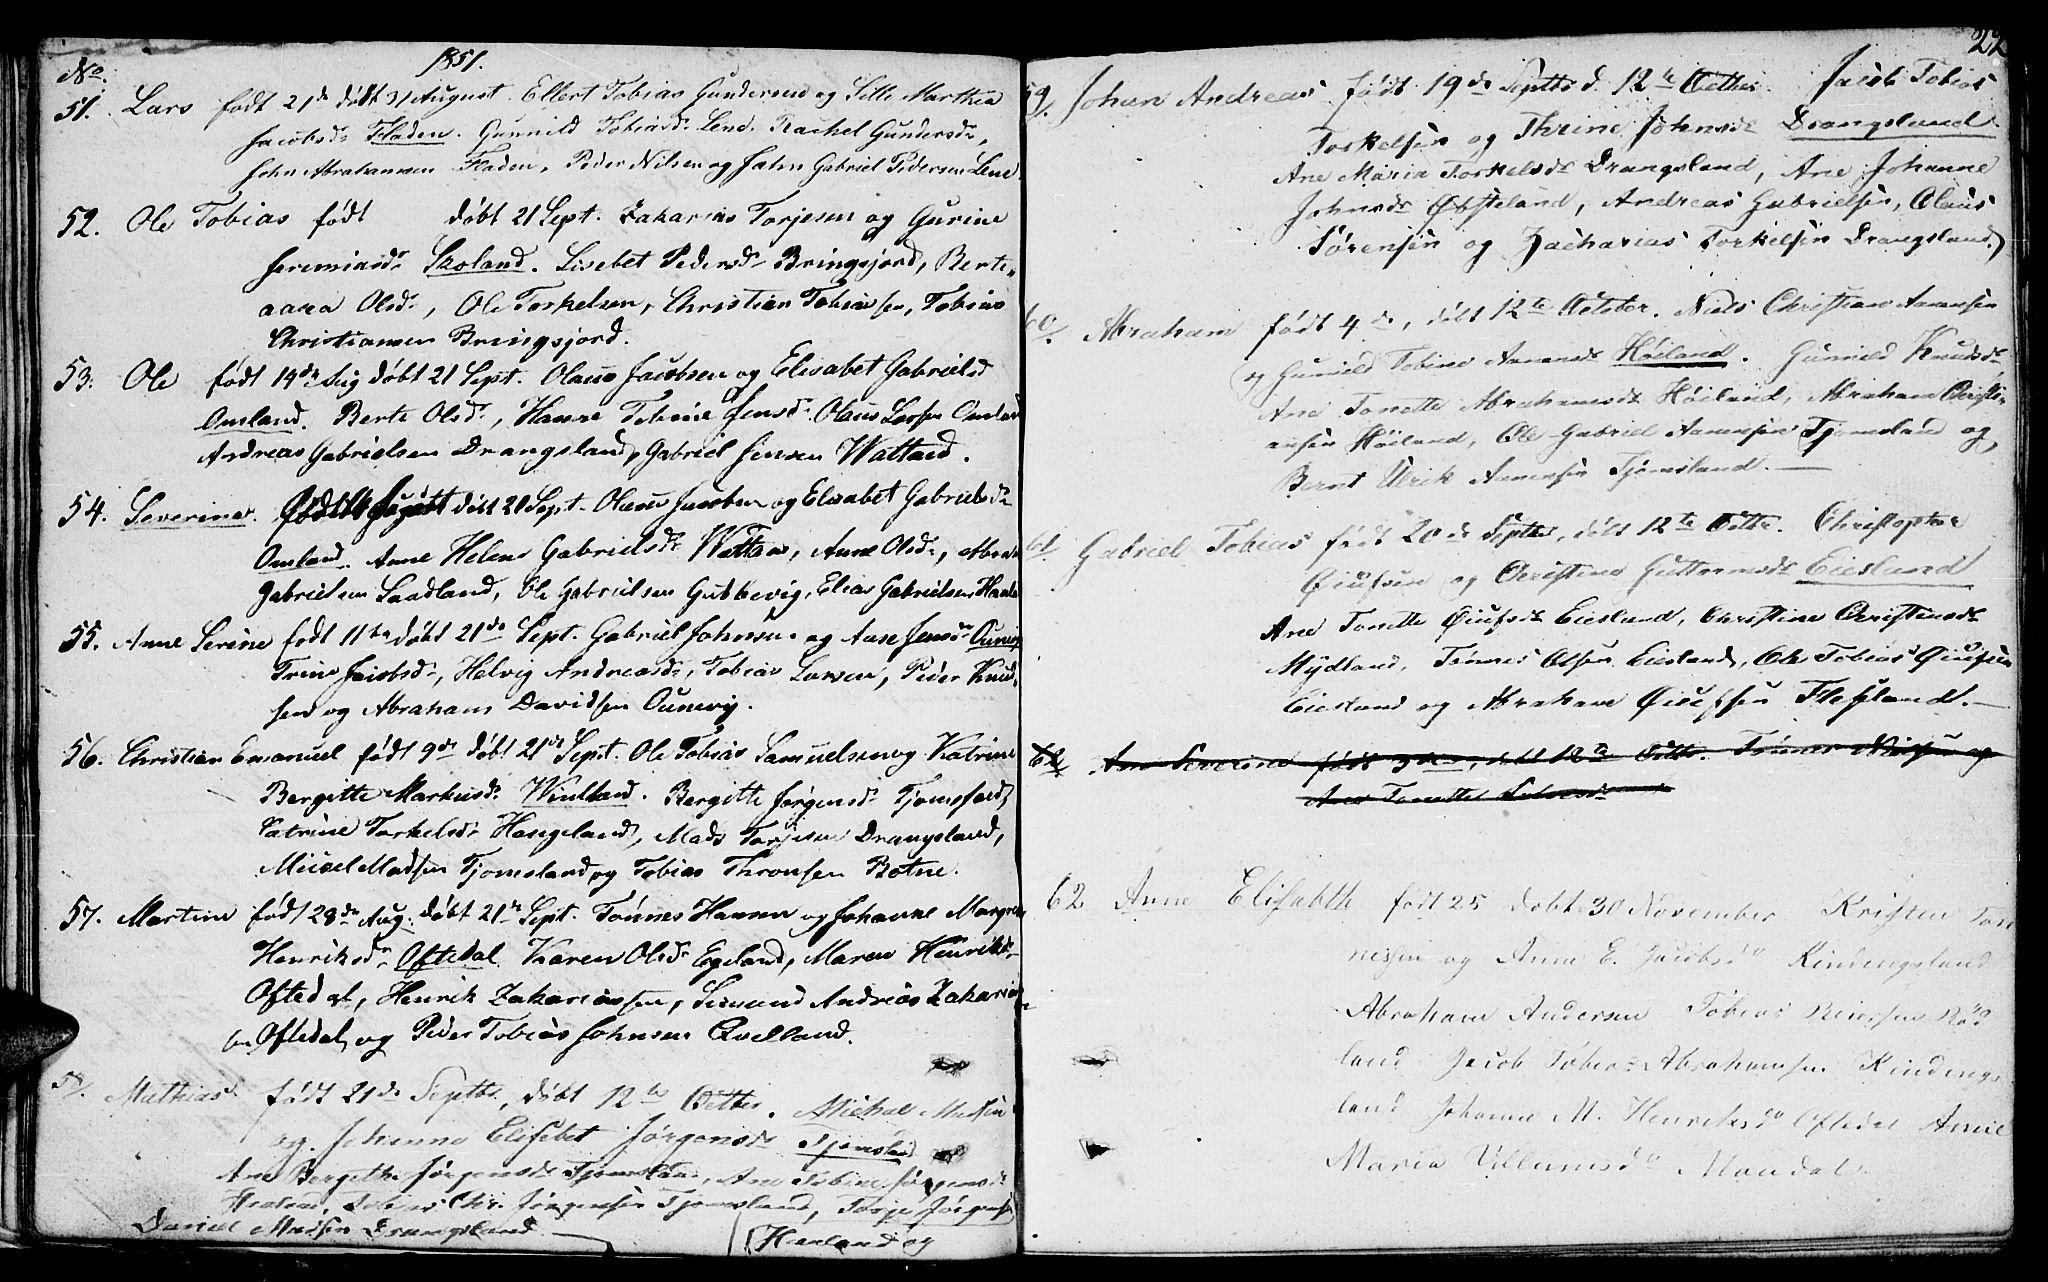 No. 1851.
51. Lars født 21de døbt 31 August Ellert Tobias Gundersen og Sille Marthea
Jacobsdr Fladen. Gunnild Tobiasdr Lene. Rachel Gundersdr,
John Abrahamsen Fladen, Peder Nilsen og John Gabriel Pedersen Lene
52. Ole Tobias født døbt 21 Sept. Zakarias Torjesen og Gurine
Jeremiasdr Skoland. Lisebet Pedersdr Bringsjord, Berte
Olsdr, Ole Torkelsen, Christian Tobiassen, Tobias
Christiansen Bringsjord.
53. Ole født 14de Aug døbt 21 Sept. Olaus Jacobsen og Elisabet Gabrielsd
Omland. Berte Olsdr, Hanne Tobine Jensdr Olaus Larsen Omland
Andreas Gabrielsen Drangsland, Gabriel Jensen Watland.
54. Severine. født 14 August døbt 21 Sept. Olaus Jacobsen og Elisabet Gabrielsdr
Omland. Anne Helene Gabrielsdr Wattan, Anne Olsdr,
Gabrielsen Saadland, Ole Gabrielsen Gubbevig, Elias Gabrielsen
55. Anne Serine født 11te døbt 21de Sept. Gabriel Johnsen og Anne Jensdr Ounevig
Trine Jacobsdr, Helvig Andreasdr, Tobias Larsen, Peder Knud-
sen og Abraham Davidsen Ounevig.
56. Christian Emanuel født 9de døbt 21de Sept. Ole Tobias Samuelsen og Katrine
Bergitte Markusdr Winlland. Bergitte Jørgensdr Tjomsland,
Katrine Torkelsdr Hengeland, Mads Torjesen Drangsland,
Mikel Madsen Tjomsland og Tobias Thronsen Botne.
57. Martine født 28de Aug. døbt 21te Sept. Tønnes Hansen og Johanne Margrete
Henriksdr Oftedal. Karen Olsdr Egeland, Maren Henriksdr
Oftedal, Henrik Zakariassen, Simund Andreas Zakarias
sen Oftedal, og Peder Tobias Johnsen Qvelland.
58/. Mathias født 21de Septbr, døbt 12te Octbr. Michal Madsen
og Johanne Elisebet Jørgensdr Tjomsland
Ane Bergithe Jørgensdr Tjomsland, Ane Tobine Jørgensdr
Chr. Jørgensen Tjomsland, Torje Jørgensen
Daniel Madsen Drangsland. [Heiland og
22
59/. Johan Andreas født 19de Septbr d. 12te Octbr. Jacob Tobias
Torkelsen og Thrine Johnsdr Drangsland.
Ane Maria Torkelsdr Drangsland, Ane Johanne
Johnsdr Øbsteland, Andreas Gabrielsen, Olaus
Sørensen og Zacharias Torkelsen Drangsland.
60/. Abraham født 4de, døbt 12te October. Niels Christian Aanensen
og Gunild Tobine Aanensdr Høiland. Gunild Knudsdr
Ane Tonette Abrahamsdr Høiland, Abraham Christi-
ansen Høiland, Ole Gabriel Aanensen Tjomsland og
Bernt Ulrik Aanensen Tjomsland.
61/. Gabriel Tobias født 20de Septbr, døbt 12te Octbr. Christopher
Øiufsen og Christine Guttormsdr Eiesland
Ane Tonette Øiufsdr Eiesland, Christine Christensdr
Mydland, Tønnes Olsen Eiesland, Ole Tobias Øiufsen
Eiesland og Abraham Øiufsen Flesland.
62 Ane Severine født 3de, døbt 12te Octbr. Tønnes Nilsen og
Ane Tonette
62 Anne Elisabth født 25 døbt 30 November Kristen Tøn
nessen og Anne E. Jacobsdr Kindingsland
Abraham Andersen Tobias Reiersen Rød
land Jacob Tobias Abrahamsen Kindings
land Johanne M. Henriksdr Oftedal Anne
Maria Villumsdr Mandal.